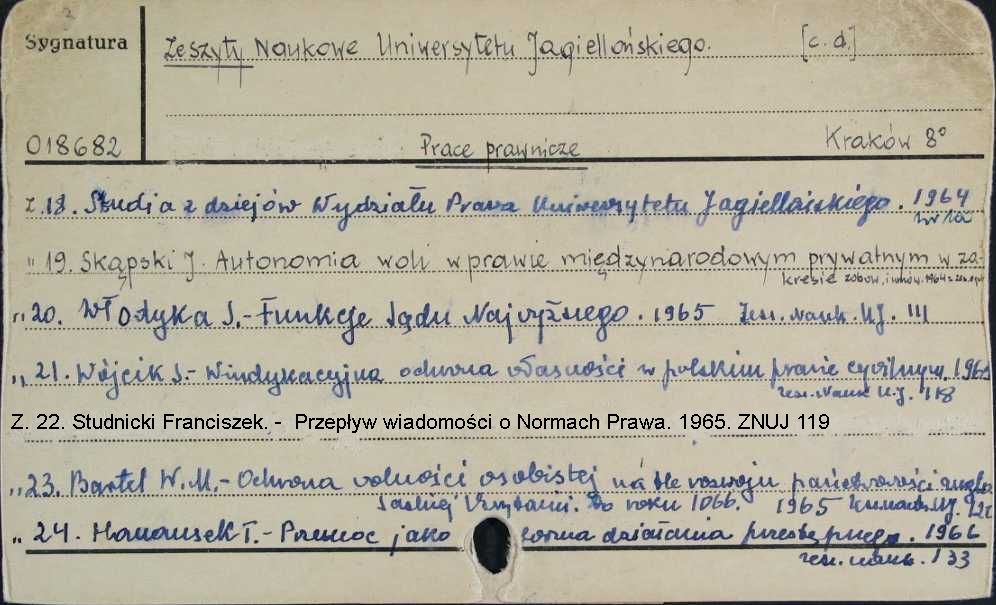 Sygnatura
Zeszyty Naukowe Uniwersytetu Jagiellońskiego. [c.d.]
018682
Prace prawnicze
Kraków 8°
Z. 18. Studia z dziejów Wydziału Prawa Uniwersytetu Jagiellońskiego. 1964
" 19. Skąpski J. Autonomia woli w prawie międzynarodowym prywatnym w za-
kresie zobow. i umów. 1964
" 20. Włodyka S. - Funkcje Sądu Najwyższego. 1965 Zesz. Nauk. UJ. 111
" 21. Wójcik S. - Windykacyjna ochrona własności w polskim prawie cywilnym. 1965
zesz. Nauk U.J. 118
Z. 22. Studnicki Franciszek. - Przepływ wiadomości o Normach Prawa. 1965. ZNUJ 119
" 23. Bartel W.M. - Ochrona wolności osobistej na tle rozwoju państwowości anglo
saskiej Brytanii. Do roku 1066. 1965
" 24. Hanausek T. - Przemoc jako forma działania przestępnego. 1966
zesz. nauk. 133